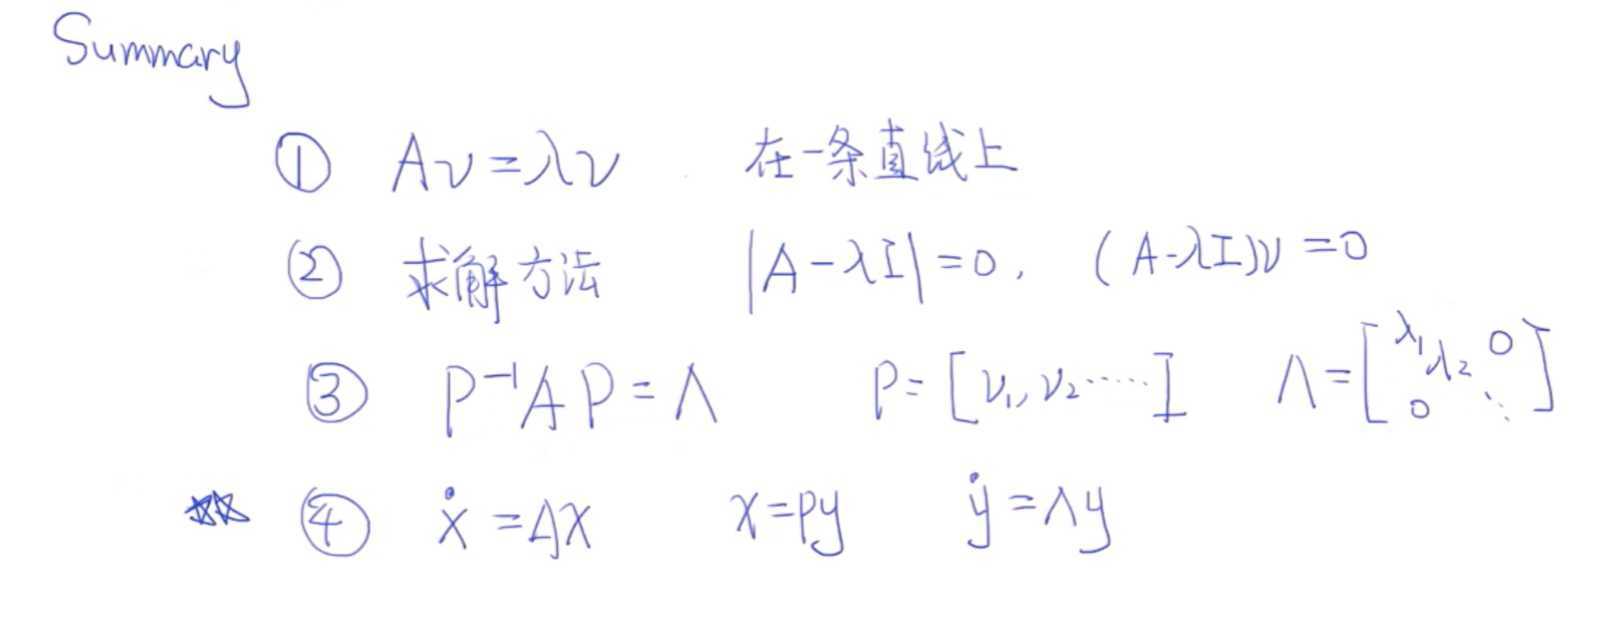 Summary
① Aν = λν 在一条直线上
② 求解方法 |A - λI| = 0, (A-λI)ν = 0
③ P⁻¹AP = Λ P = [ν₁, ν₂ ⋯⋯] Λ = [λ₁ λ₂ 0 0 ⋱]
☆☆ ④ ẋ = Ax x = Py ẏ = Λy